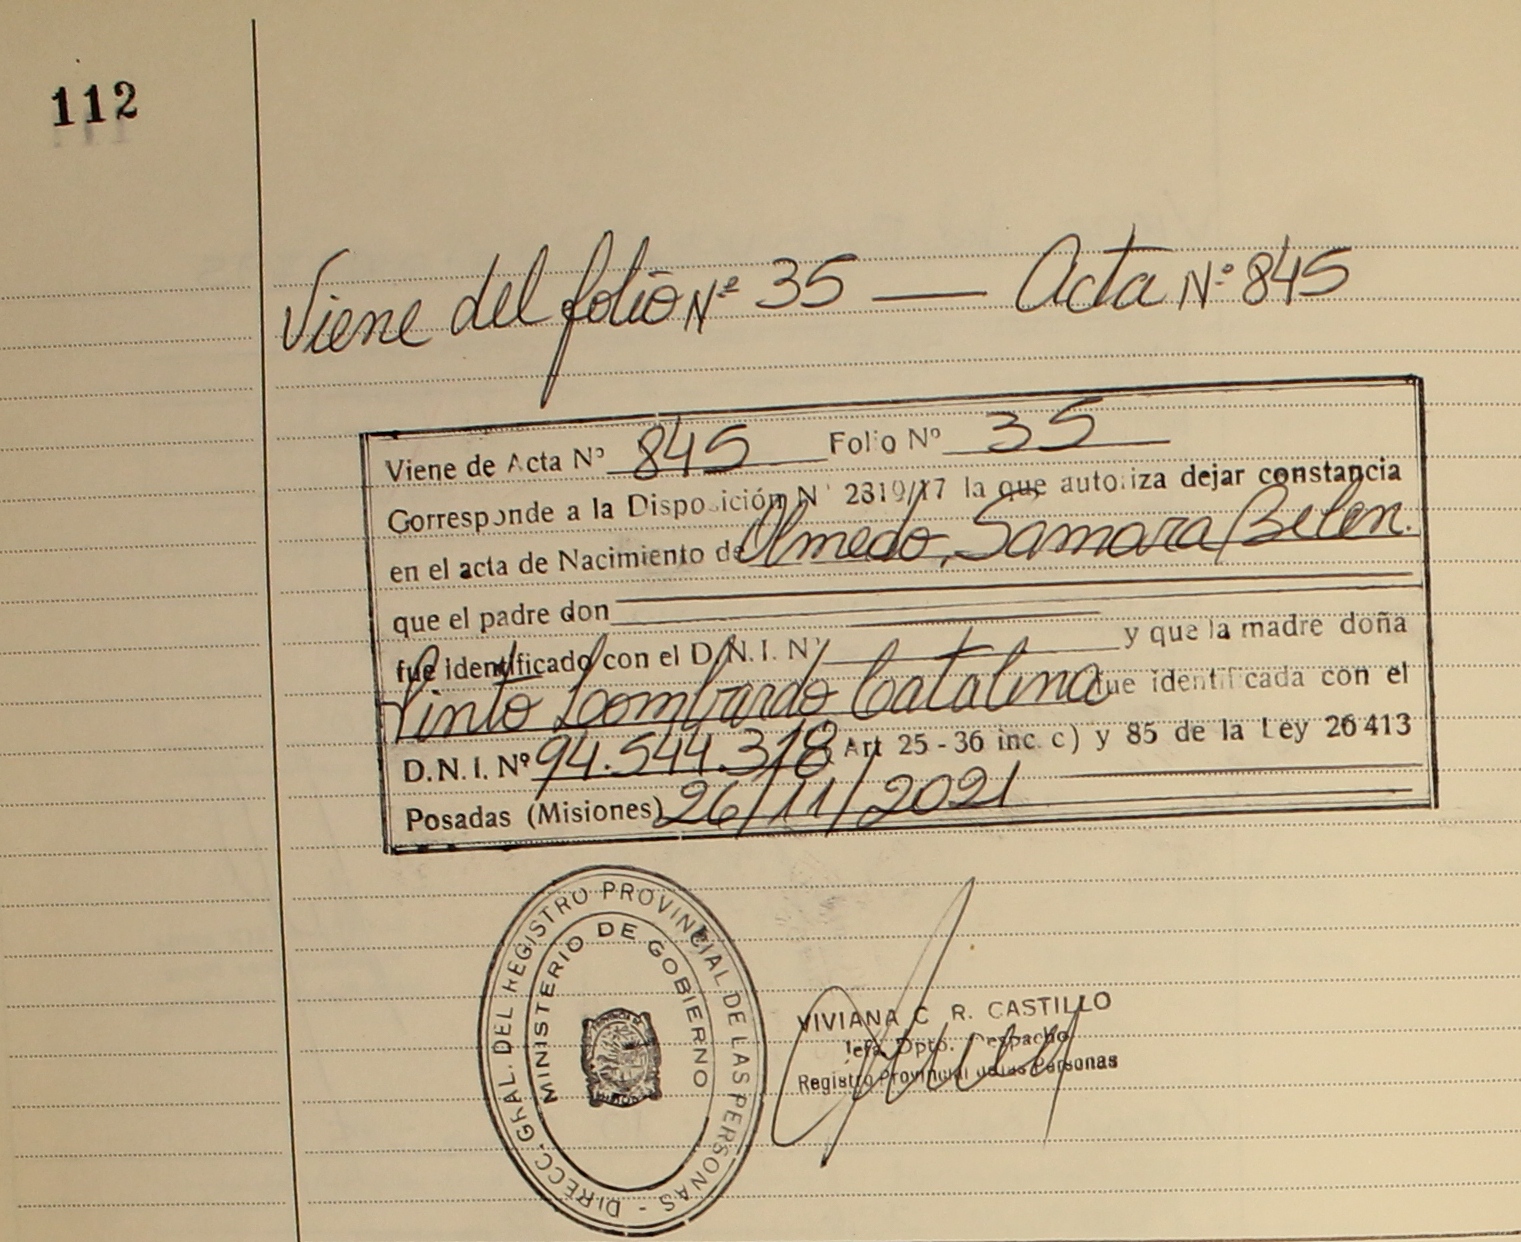 112
Viene del folio Nº 35 — Acta Nº 845
Viene de Acta Nº 845 Folio Nº 35
Corresponde a la Disposición Nº 2319/17 la que autoriza dejar constancia
en el acta de Nacimiento de Olmedo, Samara Belen.
que el padre don
fue identificado con el D.N.I. Nº y que la madre doña
Pinto Lombardo Catalina fue identificada con el
D.N.I. Nº 94.544.318 Art 25 - 36 inc. c) y 85 de la Ley 26 413
Posadas (Misiones) 26/11/2021
DIRECC. GRAL. DEL REGISTRO PROVINCIAL DE LAS PERSONAS -
MINISTERIO DE GOBIERNO
VIVIANA C R. CASTILLO
Jefa Dpto. Despacho
Registro Provincial de las Personas